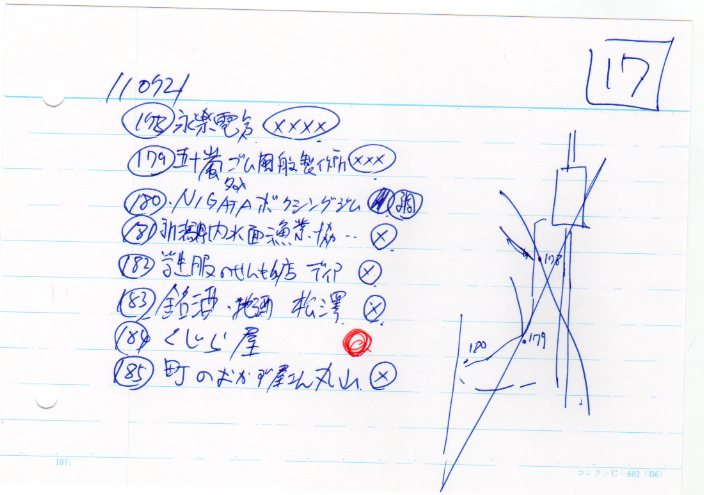 17
110921
178 永楽電気 ××××
179 五十嵐ゴム用般製作所 ×××
180 NIGATAボクシングジム
181 新潟県内水面漁業協‥ ×
182 学生服のせんもん店 ディア ×
183 銘酒・地酒 松澤 ×
184 くじら屋
185 町のおかず屋さん丸山 ×
178
179
180
コレクト C-602 (B6)